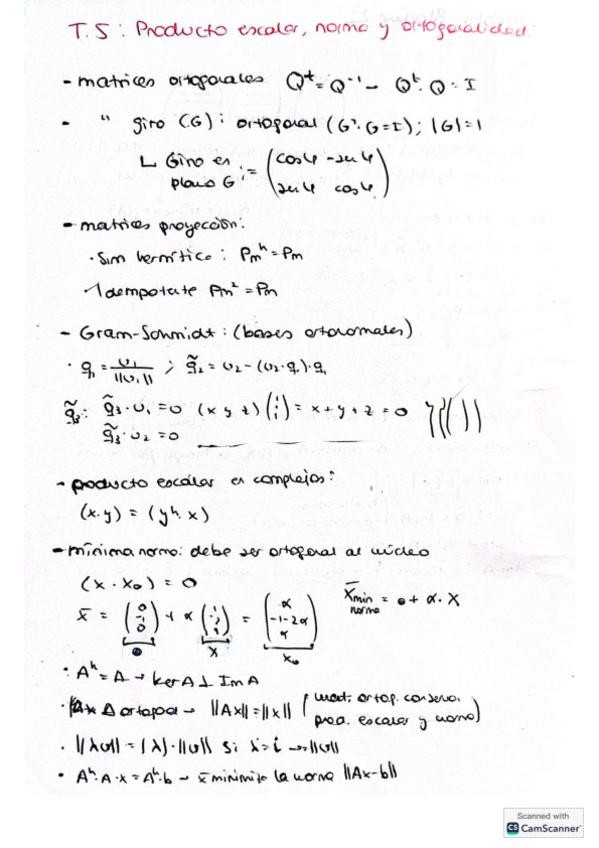 T.5: Producto escalar, norma y ortogonalidad.
- matrices ortogonales Qᵗ = Q⁻¹ - Qᵗ·Q = I
- " giro (G): ortogonal (Gᵗ·G = I); |G| = 1
↳ Giro en plano G := (cos φ -sen φ
sen φ cos φ)
- matrices proyección:
· Sim hermítico: Pmʰ = Pm
· Idempotente Pm² = Pm
- Gram-Schmidt: (bases ortonormales)
· q₁ = v₁/||v₁|| ; q̃₂ = v₂ - (v₂·q₁)·q₁
q̃₃: q̃₃·v₁ = 0 (x y z)(1 1 1) = x + y + z = 0
q̃₃·v₂ = 0
- producto escalar en complejos:
(x·y) = (yʰ·x)
- mínima norma: debe ser ortogonal al núcleo
(x · x₀) = 0
x̄ = (0 -1 0) + α (1 -2 1) = (α -1-2α α) x̄ min norma = + α·x
x x₀
· Aʰ = A → ker A ⊥ Im A
· A ortogonal → ||Ax|| = ||x|| (mat. ortog. conserva
prod. escalar y norma)
· ||λv|| = |λ|·||v|| si λ = i → ||v||
· Aʰ·A·x = Aʰ·b → x̄ minimiza la norma ||Ax-b||
Scanned with
CS CamScanner